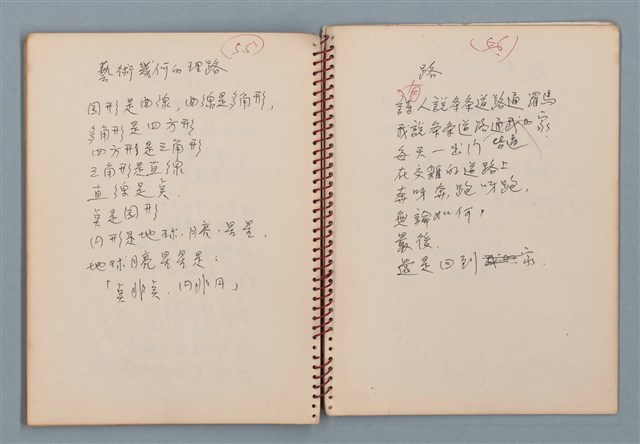 (55)
藝術幾何的理路
圓形是曲線，曲線是多角形，
多角形是四方形
四方形是三角形
三角形是直線
直線是点
点是圆形
円形是地球．月亮．星星．
地球月亮星星是：
「点非点．円非円」
(56)
路
人說条条道路通羅馬
我說条条道路通我的家
每天一出門
在交雜的道路上
奔呀奔，跑呀跑，
無論如何，
最後．
還是回到我的家．